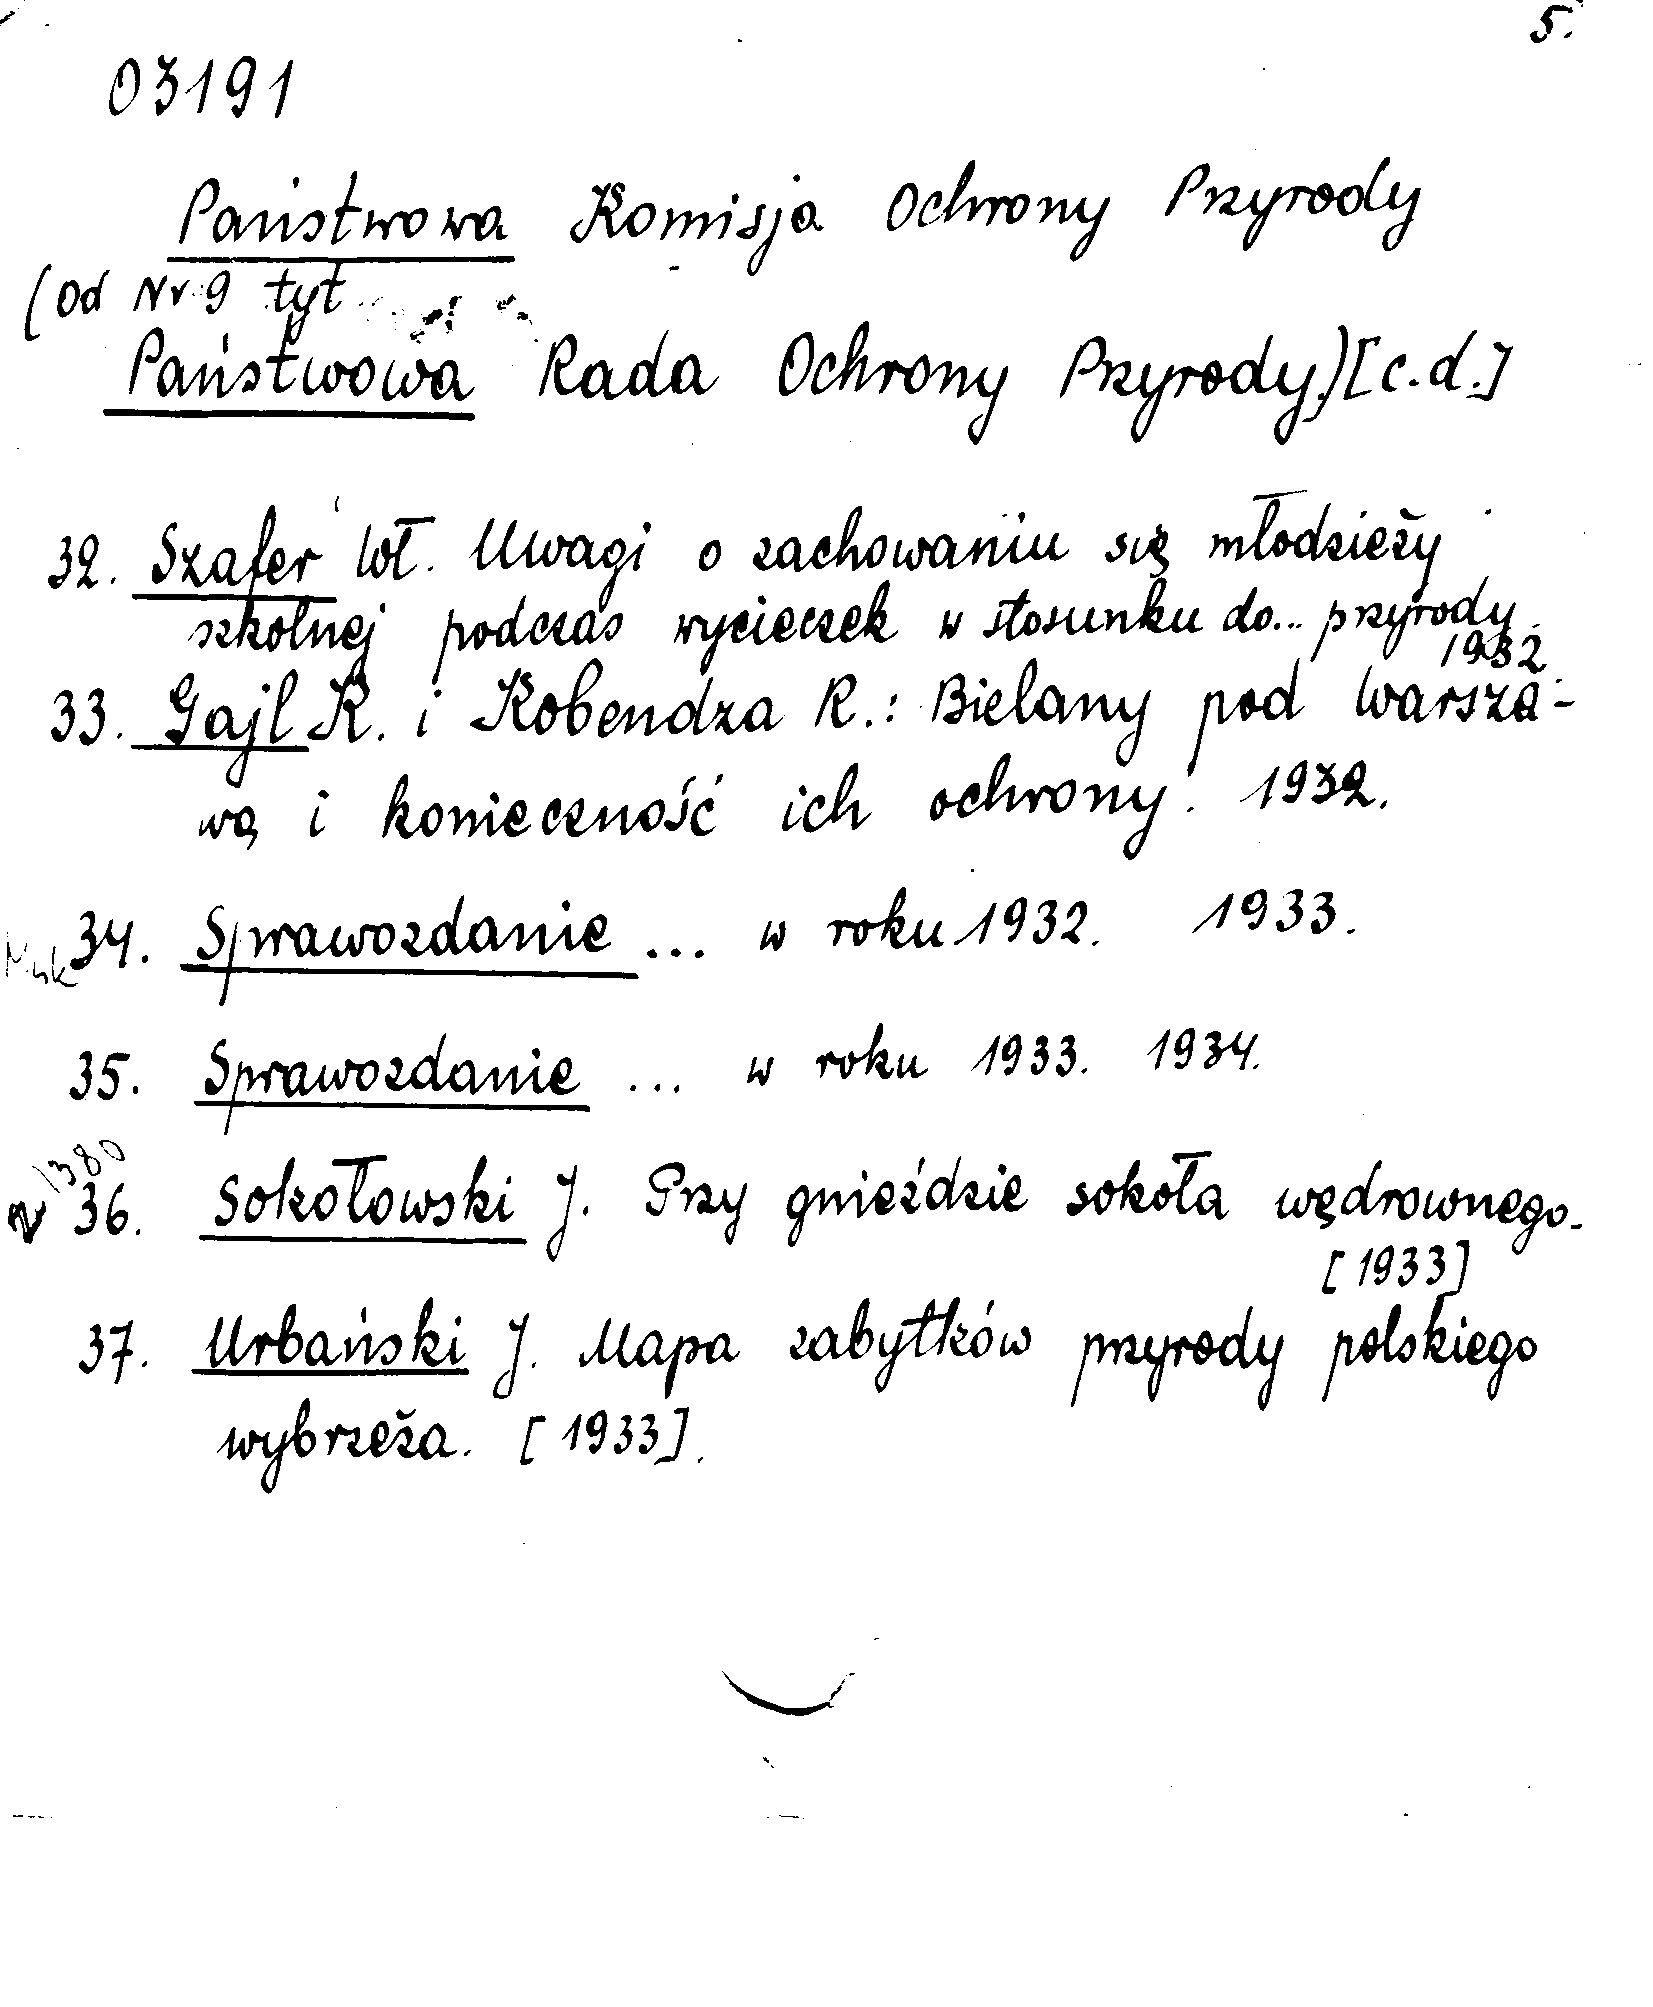 5.
03191
Państwowa Komisja Ochrony Przyrody
(od Nr 9 tyt
Państwowa Rada Ochrony Przyrody) [c.d.]
32. Szafer Wł. Uwagi o zachowaniu się młodzieży
szkolnej podczas wycieczek w stosunku do... przyrody.
1932
33. Gajl K. i Kobendza R.: Bielany pod Warsza-
wą i konieczność ich ochrony. 1932.
34. Sprawozdanie ... w roku 1932. 1933.
35. Sprawozdanie ... w roku 1933. 1934.
1380
36. Sokołowski J. Przy gnieździe sokoła wędrownego.
[1933]
37. Urbański J. Mapa zabytków przyrody polskiego
wybrzeża. [1933].